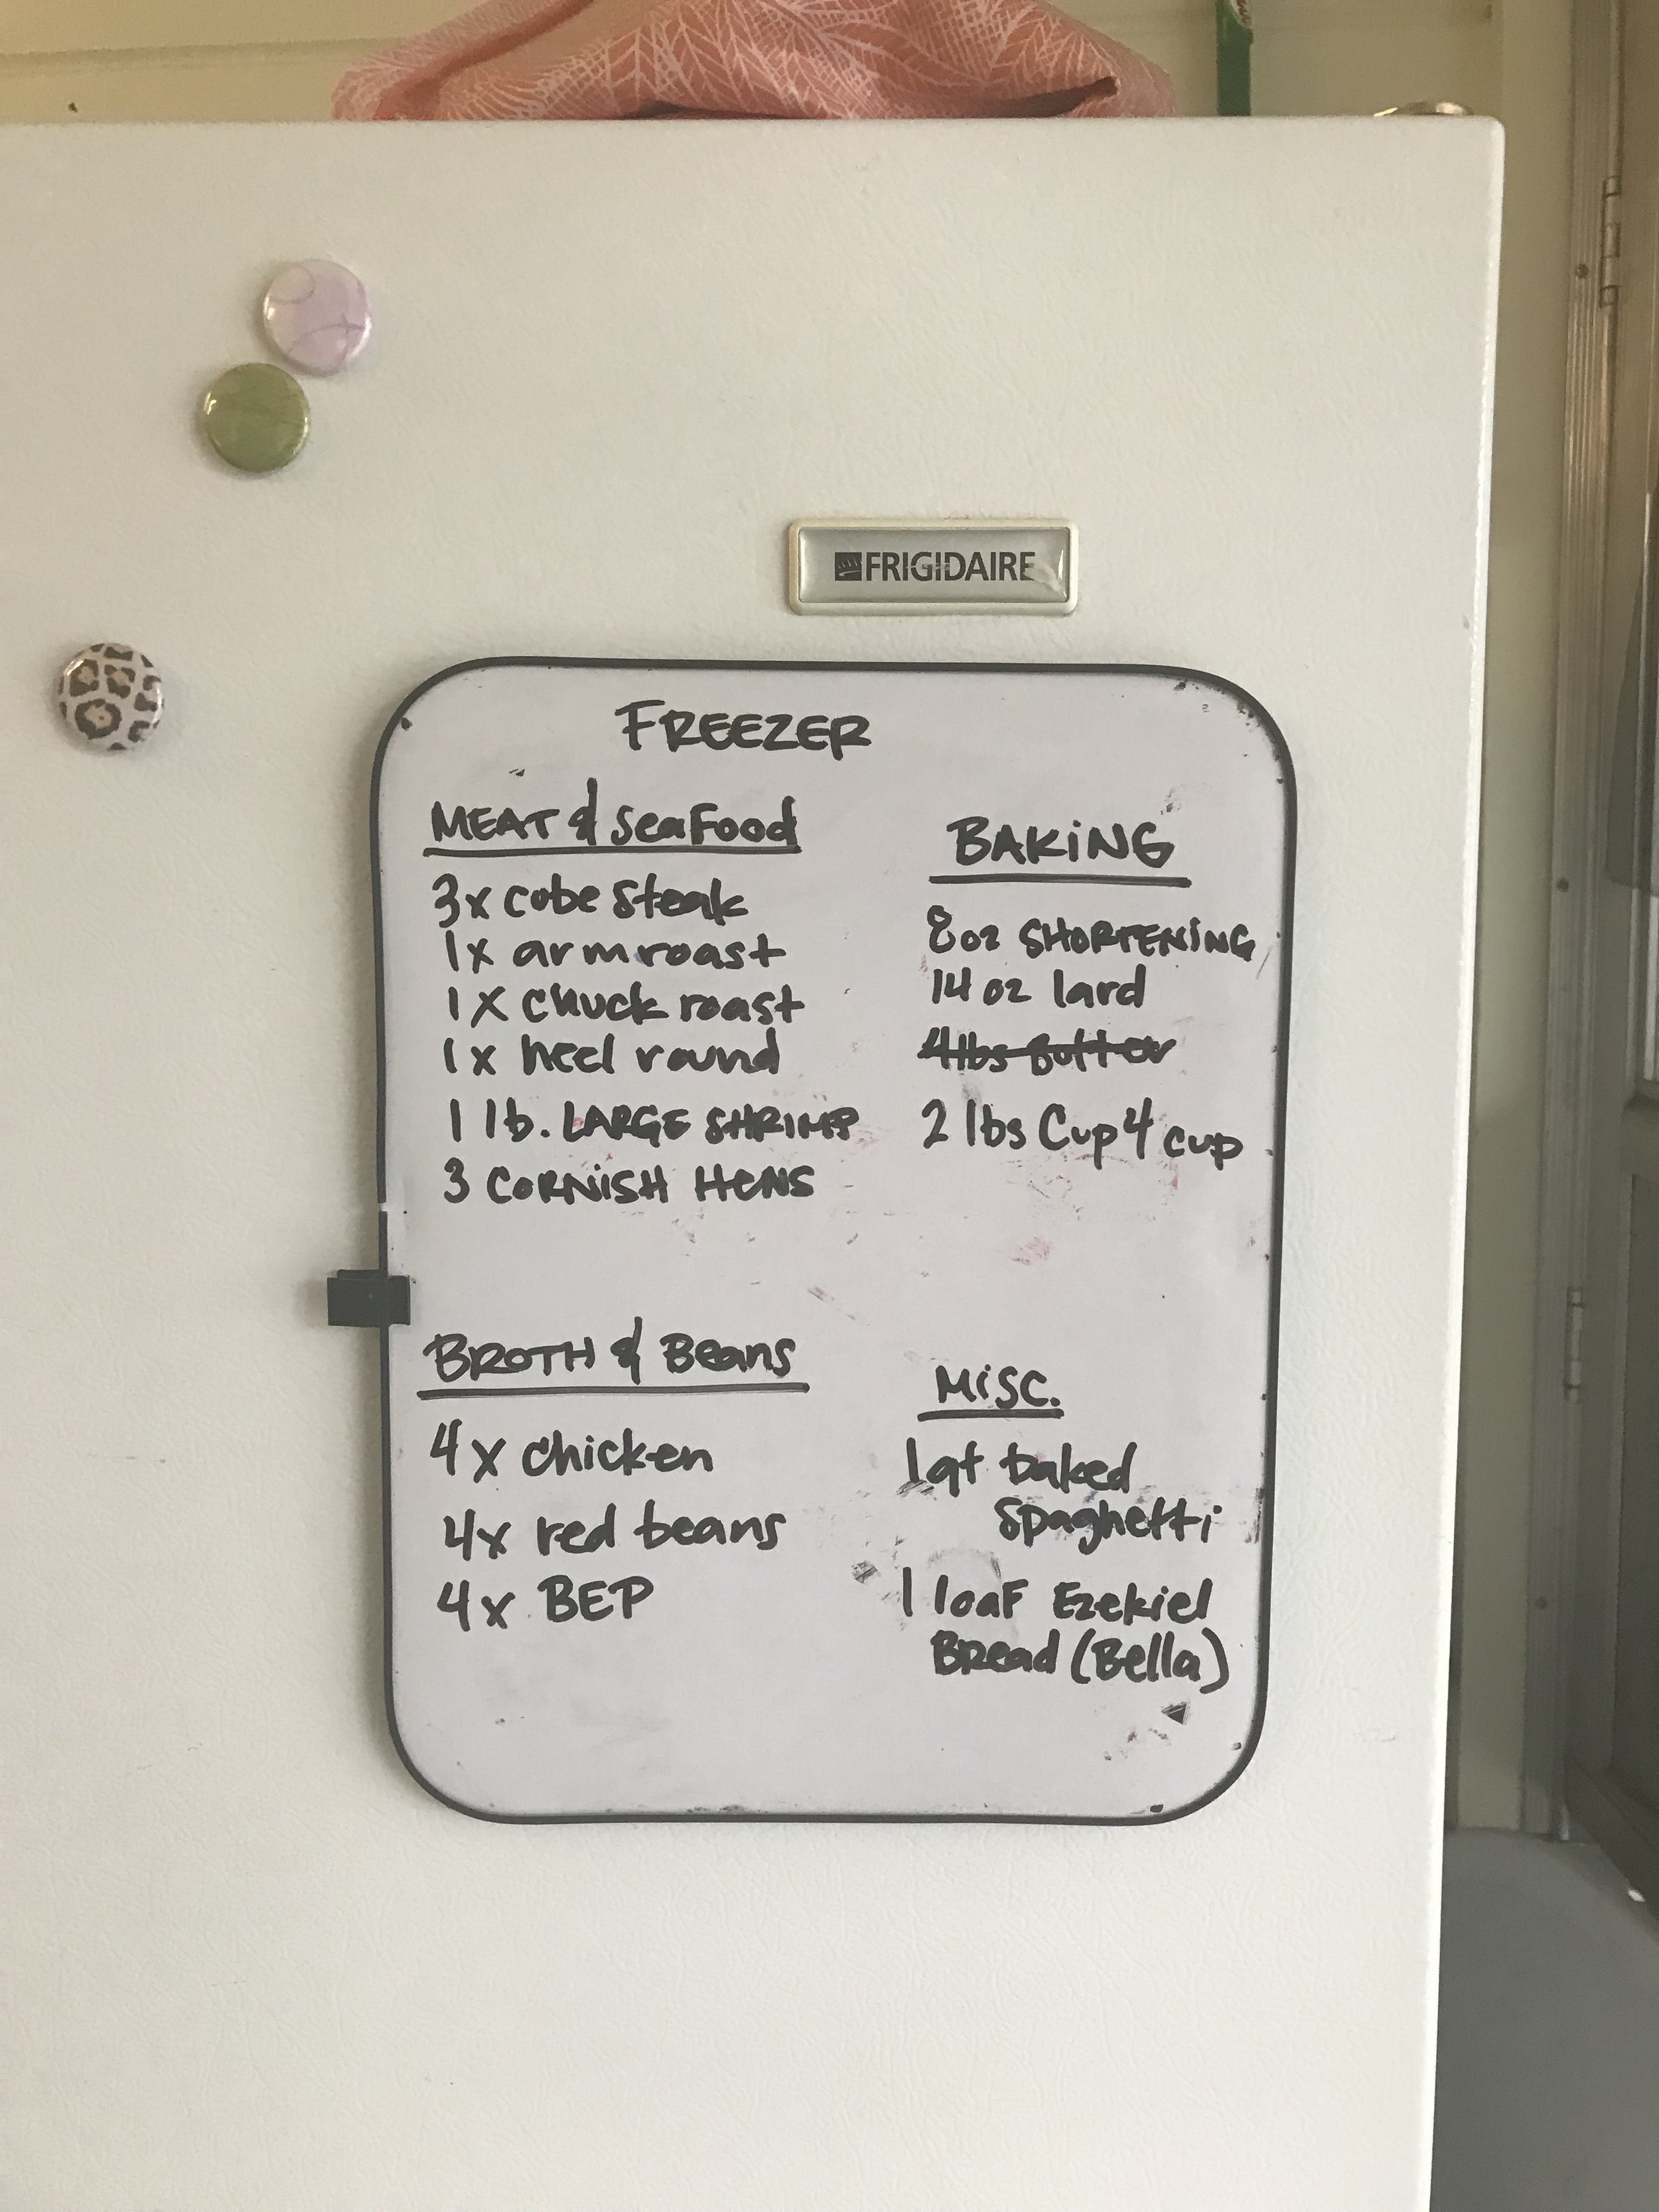 FRIGIDAIRE
FREEZER
MEAT & SeaFood
3x cube steak
1x arm roast
1x chuck roast
1x heel round
1 lb. LARGE SHRIMP
3 CORNiSH HeNS
BAKiNG
8oz SHORTENiNG
14 oz lard
4lbs Butter
2 lbs Cup 4 cup
BROTH & Beans
4x chicken
4x red beans
4x BEP
MiSC.
1qt baked
Spaghetti
1 loaF Ezekiel
Bread (Bella)